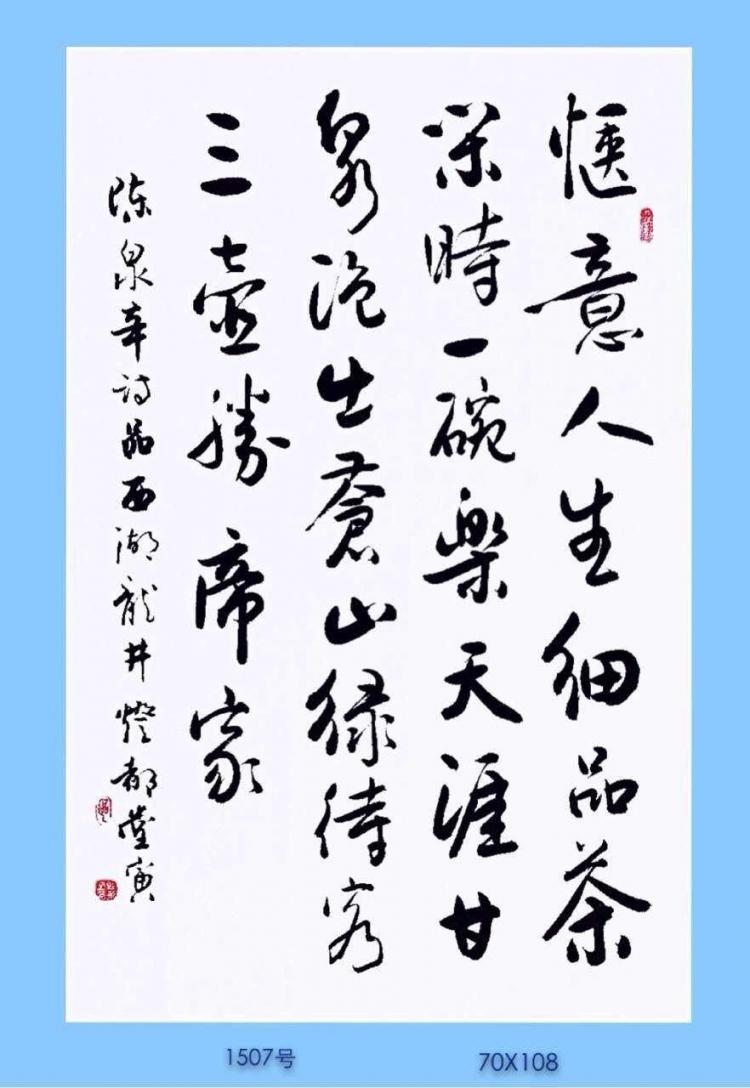 惬意人生细品茶
閑時一碗樂天涯甘
泉泡出蒼山绿待客
三壺勝帝家
陈泉章诗品西湖龍井燈都堂寅
1507号
70X108